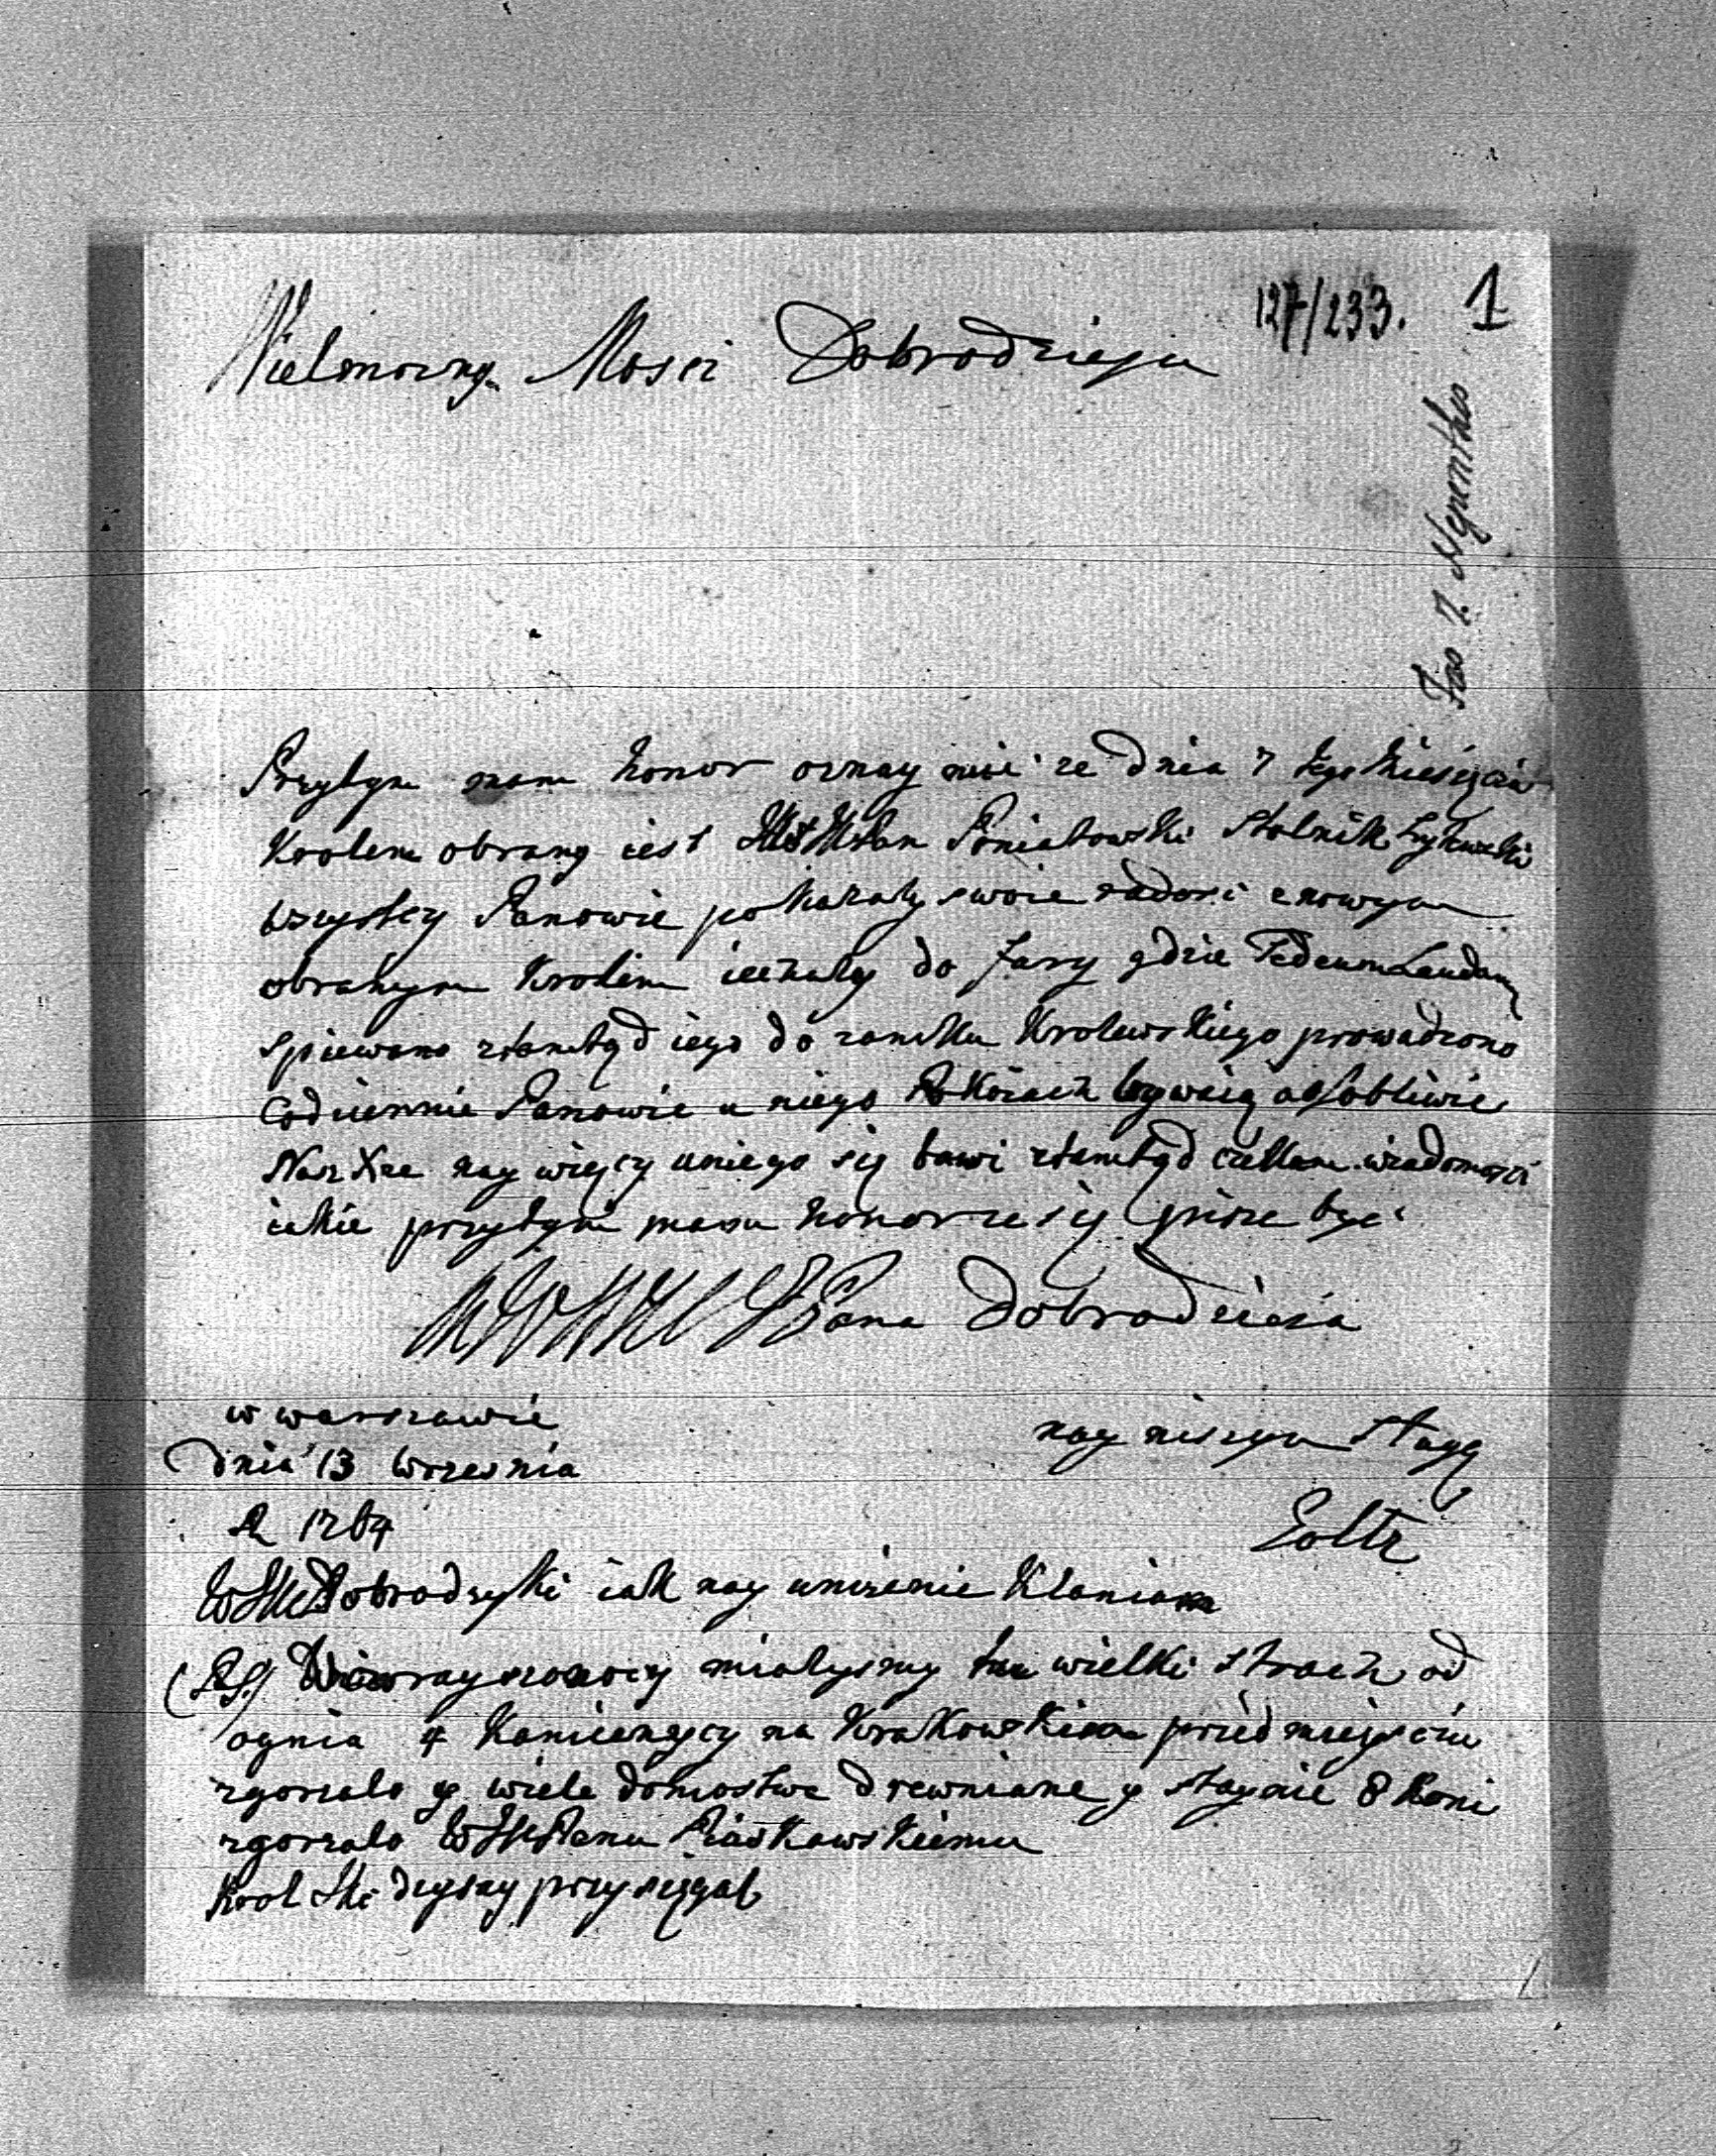 127/233. 1
Wielmozny Mosci Dobrodzieju
Fas 7. Nepenthes
Przytym mam honor oznaymic ze dnia 7 tego Miesiącia
Krolem obrany iest Poniatowski Stolnik Lytewski
wszystcy Panowie pokazaly swoie radosc z nowym
obranym Krolem iechaly do fary gdzie Tedeum Laudam
spiewano ztamtąd iego do zamku Krolewskiego prowadzono
Codziennie Panowie u niego Pokoiach bywaią osobliwie
Nasz Xze nay więcy u niego się bawi ztamtąd czekam wiadomosci
iakie przytym mam honor ze się pisze byc
Pana Dobrodzieia
w warszawie
dnia 13 wrzesnia
A 1764
nay niszym slugą
Goltz
WJM Dobrodzyki iak nay unizenie Klaniam
(P.S.) miałysmy tu wielki strach od
ognia 4 Kamienycy na Krakowskim przedmiesciu
zgorzalo y wiele domostwa drewniane y staynie 8 koni
zgorzalo WJMPanu Piaskowskiemu
Krol JMc dzysay przysięgal